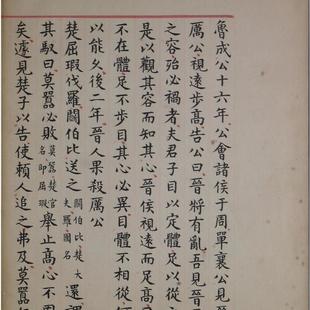 魯成公十六年公會諸侯于周單襄公見晉
厲公視遠步高告公曰晉將有亂吾見晉
之容殆必禍者夫君子目以定體足以從
是以觀其容而知其心晉侯視遠而足高
不在體足不步目其心必異目體不相從何
以能久後二年晉人果殺厲公
楚屈瑕伐羅鬬伯比送之鬬伯比楚大夫羅國名還謂
其馭曰莫囂必敗莫囂楚官名即屈瑕舉止高心不固
矣遽見楚子以告使賴人追之弗及莫囂